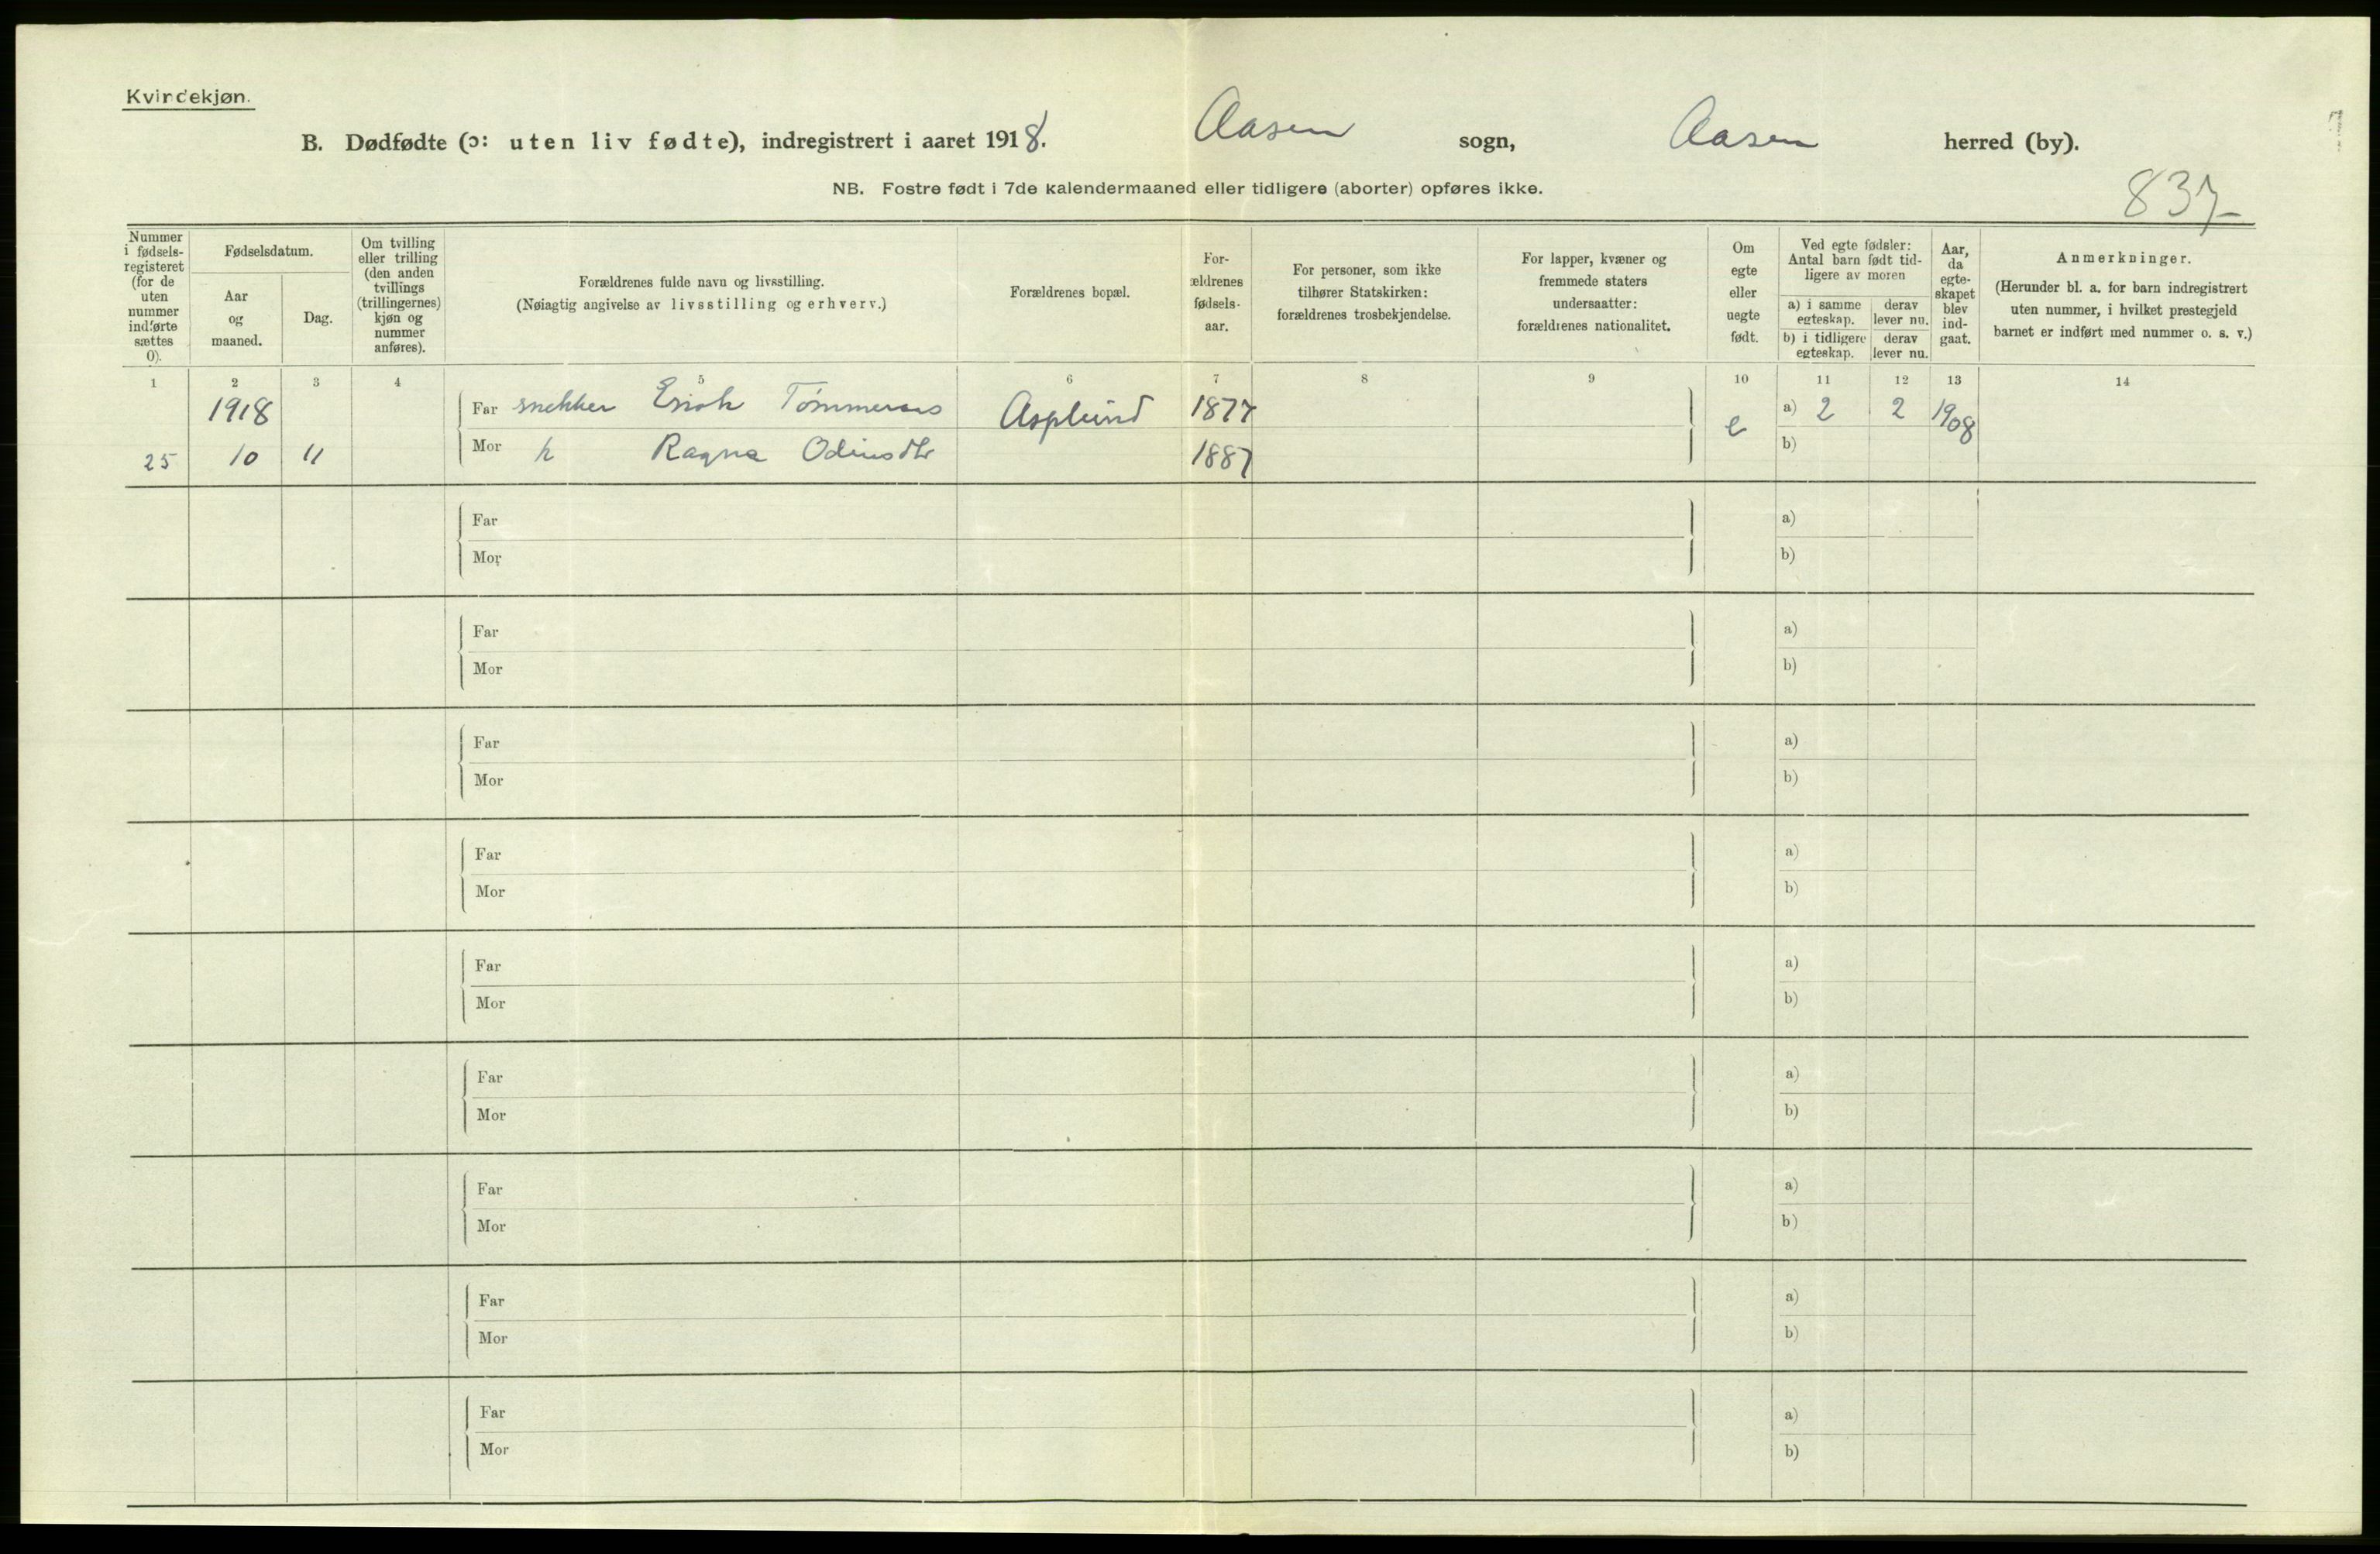 Kvindekjøn.
B. Dødfødte (ɔ: uten liv fødte), indregistrert i aaret 1918. Aasen sogn, Aasen herred (by).
NB. Fostre født i 7de kalendermaaned eller tidligere (aborter) opføres ikke.
837
Nummer i fødsels-registeret (for de uten nummer indførte sættes 0).
Fødselsdatum.
Aar og maaned.
Dag.
Om tvilling eller trilling (den anden tvillings (trillingernes) kjøn og nummer anføres).
Forældrenes fulde navn og livsstilling.
(Nøiagtig angivelse av livsstilling og erhverv.)
Forældrenes bopæl.
For-ældrenes fødsels-aar.
For personer, som ikke tilhører Statskirken: forældrenes trosbekjendelse.
For lapper, kvæner og fremmede staters undersaatter: forældrenes nationalitet.
Om egte eller uegte født.
Ved egte fødsler: Antal barn født tid-ligere av moren
a) i samme egteskap.
derav lever nu.
b) i tidligere egteskap.
derav lever nu.
Aar, da egte-skapet blev ind-gaat.
Anmerkninger.
(Herunder bl. a. for barn indregistrert uten nummer, i hvilket prestegjeld barnet er indført med nummer o. s. v.)
1 2 3 4 5 6 7 8 9 10 11 12 13 14
1918 Far snekker Erik Tømmeraas Asplund 1877 e a) 2 2 1908
25 10 11 Mor h Ragna Odinsdtr 1887 b)
Far a)
Mor b)
Far a)
Mor b)
Far a)
Mor b)
Far a)
Mor b)
Far a)
Mor b)
Far a)
Mor b)
Far a)
Mor b)
Far a)
Mor b)
Far a)
Mor b)